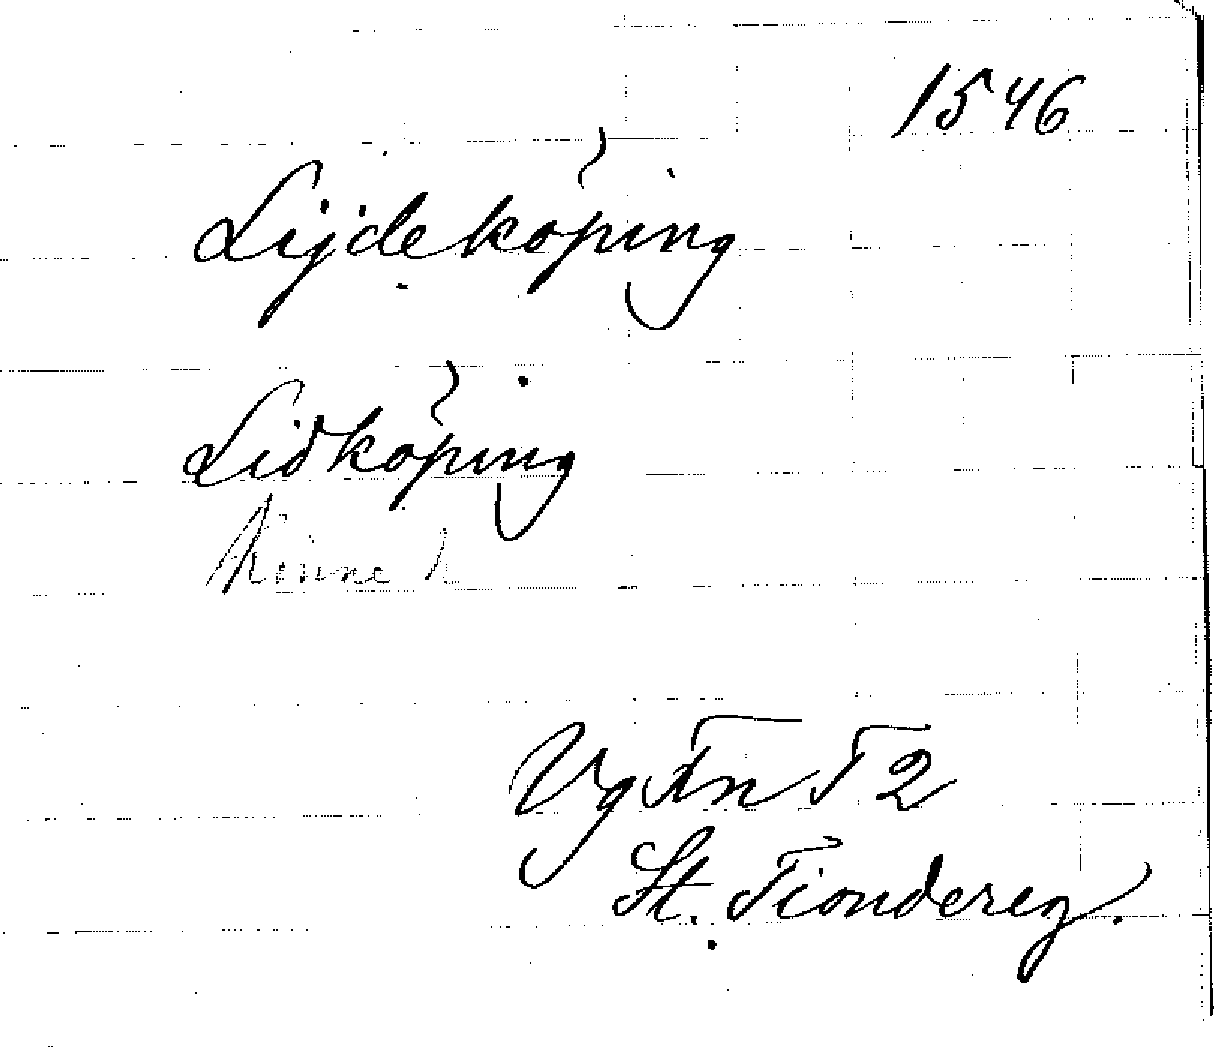 1546
Lijdeköping
Lidköping
Kinne h
Vg Fn T 2
St. Tiondereg.